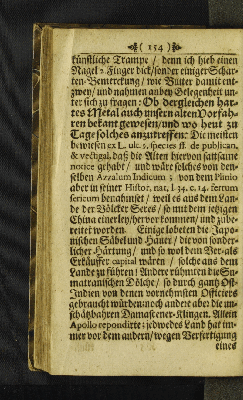 ( 154 )
künstliche Trampe / denn ich hieb einen
Nagel 2 Finger dick / sonder einiger Schar-
ten-Bemerckung / wie Butter damit ent-
zwey / und nahmen anbey Gelegenheit un-
ter sich zu fragen: Ob dergleichen har-
tes Metal auch unsern alten Vorfah-
ren bekant gewesen / und wo heut zu
Tage solches anzutreffen: Die meisten
bewiesen ex L. ult. §. species ff. de publican.
& vectigal. daß die Alten hiervon sattsame
notice gehabt / und wäre solches von dem
selben Arzalum Indicum 3 von dem Plinio
aber in seiner Histor. nat. l. 34. c. 14. ferrum
sericum benahmset / weil es aus dem Lan-
de der Völcker Seres / so mit dem jetzigen
China einerley / hervor kommen / und zube-
reitet worden. Einige lobeten die Japo-
nischen Säbel und Hauer / die von sonder-
licher Härtung / und so wol dem Ver- als
Erkäuffer capital wären / solche aus dem
Lande zu führen! Andere rühmten die Su-
matranischen Dölche / so durch gantz Ost-
Indien von denen vornehmsten Officiers
gebraucht würden: noch andere aber die un-
schätzbahren Damascener-Klingen. Allein
Apollo repondirte: jedwedes Land hat im-
mer vor dem andern / wegen Verfertigung
eines